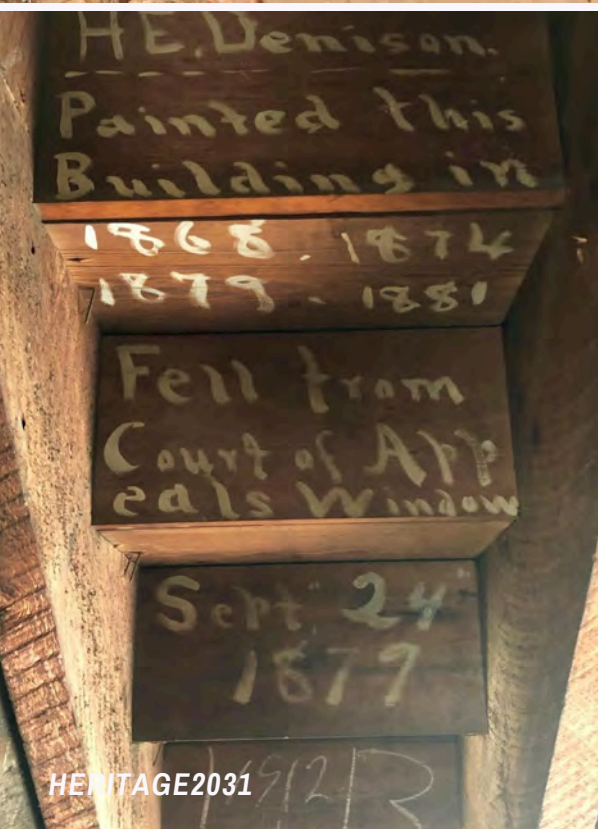 H.E. Denison.
Painted this
Building in
1868. 1874
1879. 1881
Fell from
Court of App
eals Window
Sept 24
1879
HERITAGE2031